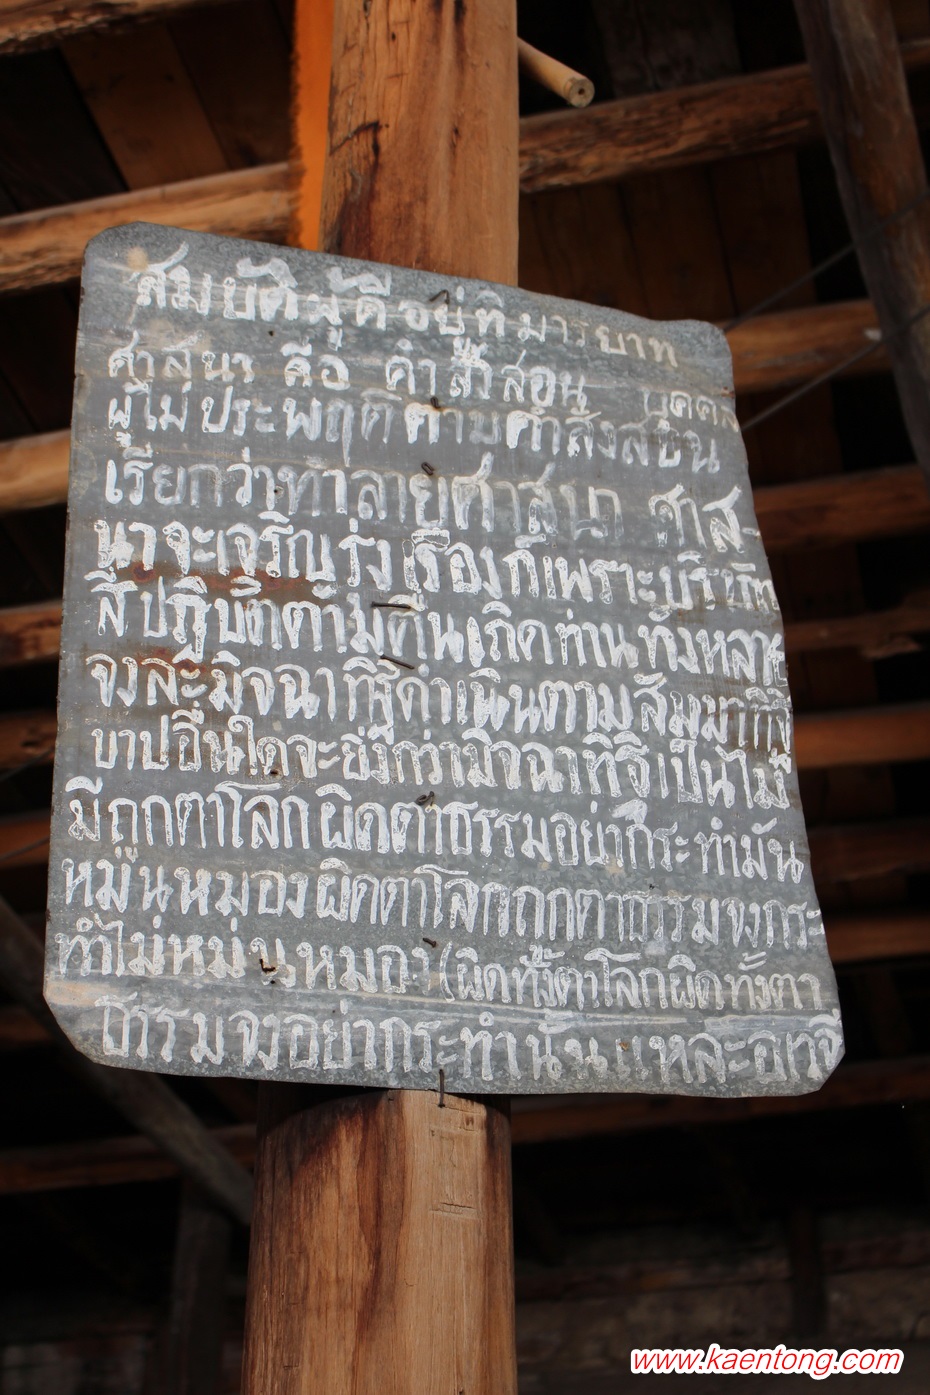 สมบัติผู้ดีอยู่ที่มารยาท
ศาสนา คือ คำสั่งสอน บุคคล
ผู้ไม่ประพฤติตามคำสั่งสอน
เรียกว่าทำลายศาสนา ศาส-
นาจะเจริญรุ่งเรืองก็เพราะบริษัท
สี่ปฏิบัติตามคืนเถิดท่านทั้งหลาย
จงละมิจฉาทิฐิดำเนินตามสัมมาทิฐิ
บาปอื่นใดจะยิ่งกว่ามิจฉาทิฐิเป็นไม่
มีถูกตาโลกผิดตาธรรมอย่ากระทำมัน
หมู่นหมองผิดตาโลกถูกตาธรรมจงกระ-
ทำไม่หม่นหมอง (ผิดทั้งตาโลกผิดทั้งตา
ธรรมจงอย่ากระทำนั้นแหละอเวจี
www.kaentong.com